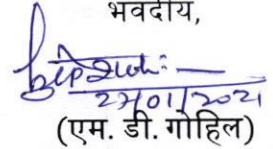 भवदीय,
27/01/2021
(एम. डी. गोहिल)